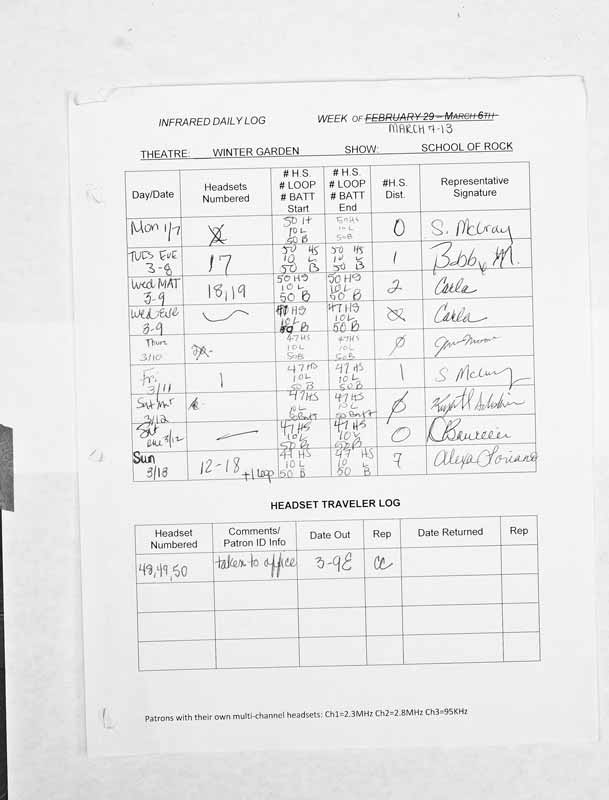 INFRARED DAILY LOG WEEK OF FEBRUARY 29 – MARCH 6TH
MARCH 7-13
THEATRE: WINTER GARDEN SHOW: SCHOOL OF ROCK
Day/Date Headsets Numbered # H.S. # LOOP # BATT Start # H.S. # LOOP # BATT End #H.S. Dist. Representative Signature
Mon 1/7 50 H 10 L 50 B 50 HS 10 L 50 B 0 S. McCray
TUES EVE 3-8 17 50 HS 10 L 50 B 50 HS 10 L 50 B 1 Bobby M.
Wed MAT 3-9 18,19 50 HS 10 L 50 B 50 HS 10 L 50 B 2 Carla
Wed Eve 3-9 47 HS 10 L 50 B 47 HS 10 L 50 B Carla
Thur 3/10 47 HS 10 L 50 B 47 HS 10 L 50 B Ø
Fri 3/11 1 47 HS 10 L 50 B 47 HS 10 L 50 B 1 S McCray
Sat Mat 3/12 47 HS 10 L 50 Batt 47 HS 10 L 50 Batt Ø
Sat eve 3/12 47 HS 10 L 50 B 47 HS 10 L 50 B 0
Sun 3/13 12-18 +1 loop 47 HS 10 L 50 B 47 HS 10 L 50 B 7 Alexa
HEADSET TRAVELER LOG
Headset Numbered Comments/ Patron ID Info Date Out Rep Date Returned Rep
48,49,50 taken to office 3-9E CC
Patrons with their own multi-channel headsets: Ch1=2.3MHz Ch2=2.8MHz Ch3=95KHz